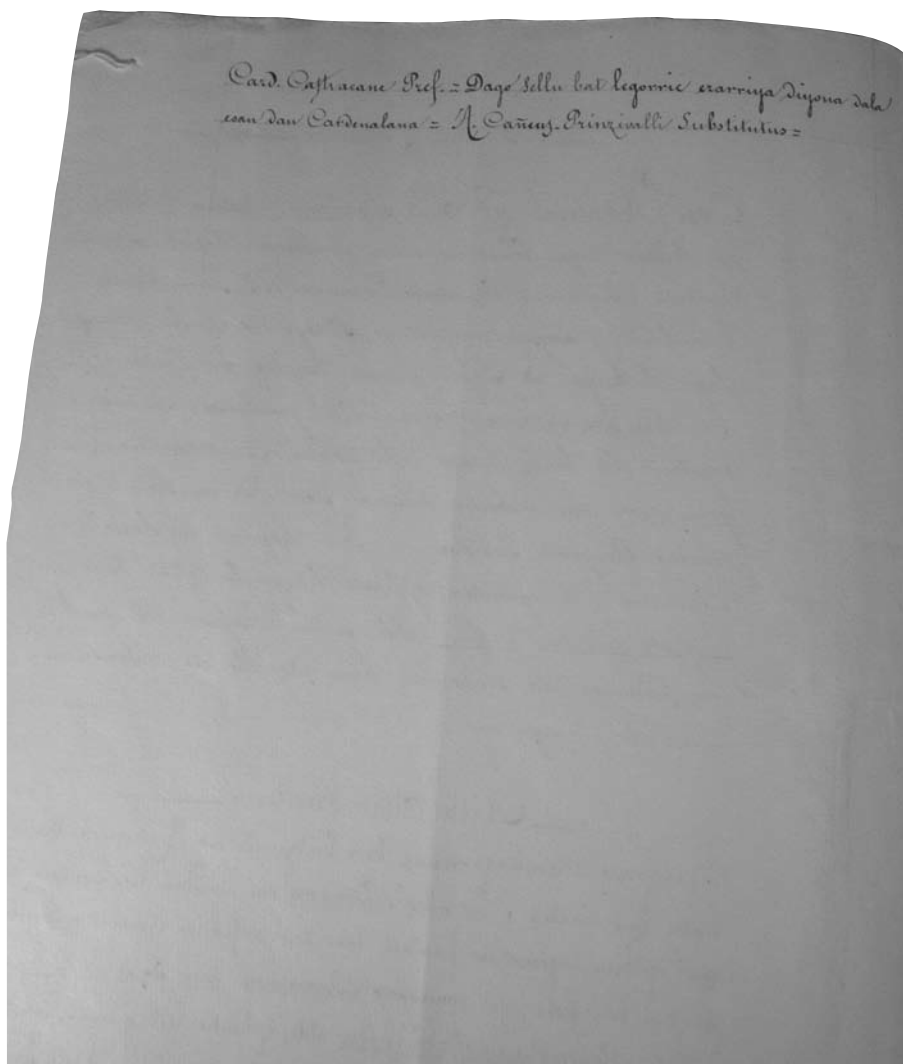 Card. Castracane Pref. = Dago sellu bat legorric erarriya diyona dala
esan dan Cardenalana = A. Cañcus. Prinzivalli Substitutus =